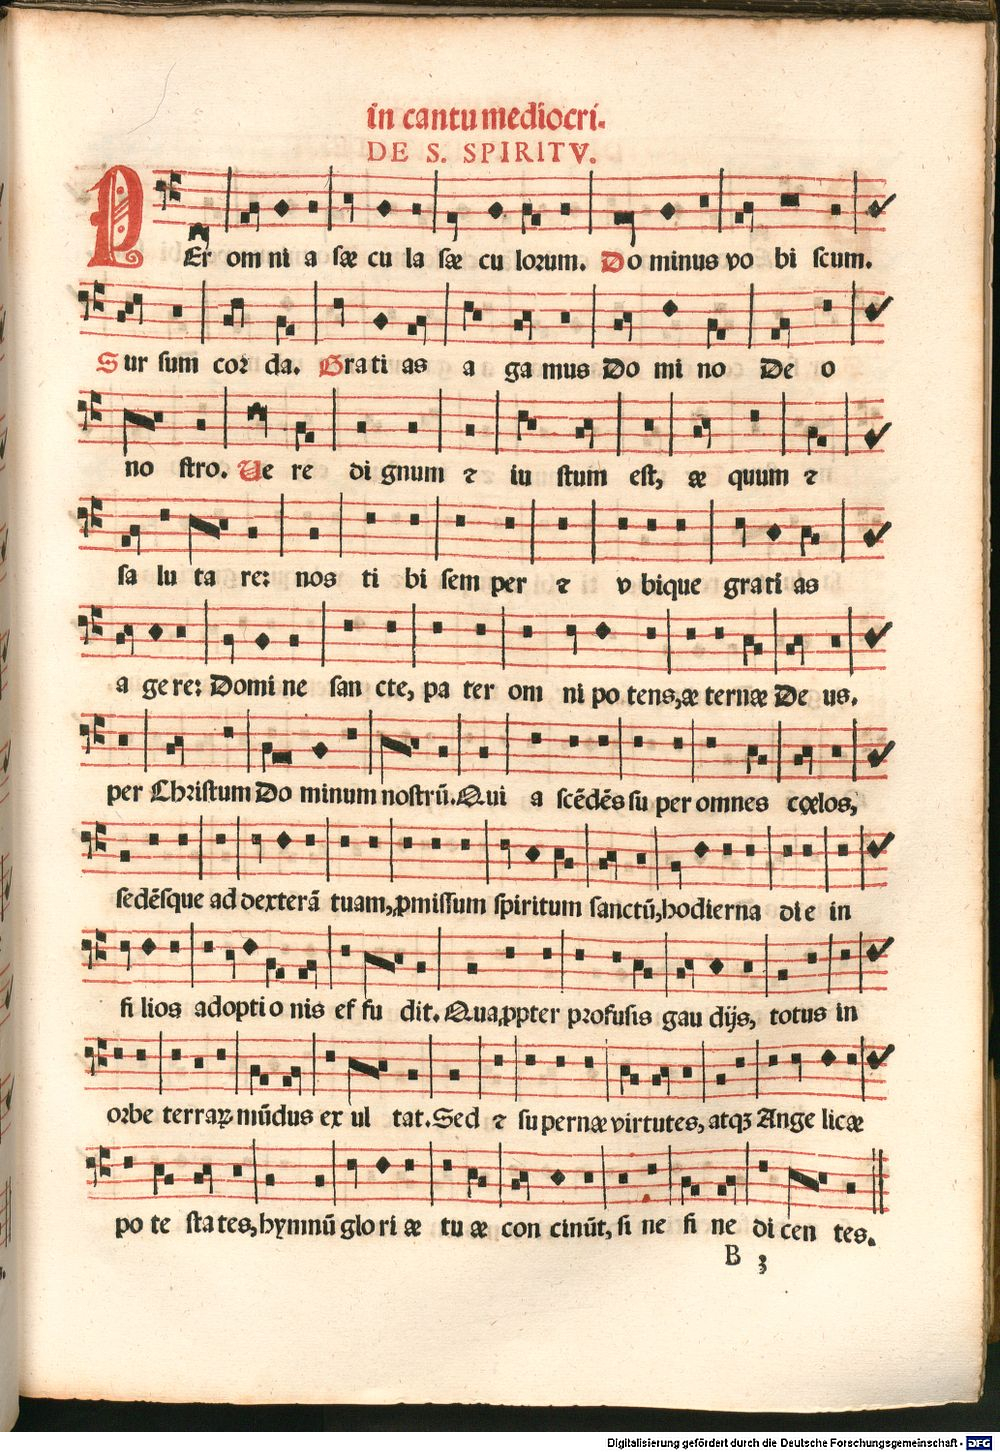 in cantu mediocri.
DE S. SPIRITV.
PEr om ni a sæ cu la sæ cu lorum. Do minus vo bi scum.
Sur sum cor da. Grati as a ga mus Do mi no De o
no stro. Ue re di gnum ⁊ iu stum est, æ quum ⁊
sa lu ta re: nos ti bi sem per ⁊ v bique grati as
a ge re: Domi ne san cte, pa ter om ni po tens, æ ternæ De us.
per Christum Do minum nostrū. Qui a scēdēs su per omnes cœlos,
sedēsque ad dexterā tuam, ꝓmissum spiritum sanctū, hodierna di e in
fi lios adopti o nis ef fu dit. Quaꝓpter profusis gau dijs, totus in
orbe terraꝝ mūdus ex ul tat. Sed ⁊ su pernæ virtutes, atqꝫ Ange licæ
po te sta tes, hymnū glo ri æ tu æ con cinūt, si ne fi ne di cen tes.
B 3
Digitalisierung gefördert durch die Deutsche Forschungsgemeinschaft - DFG